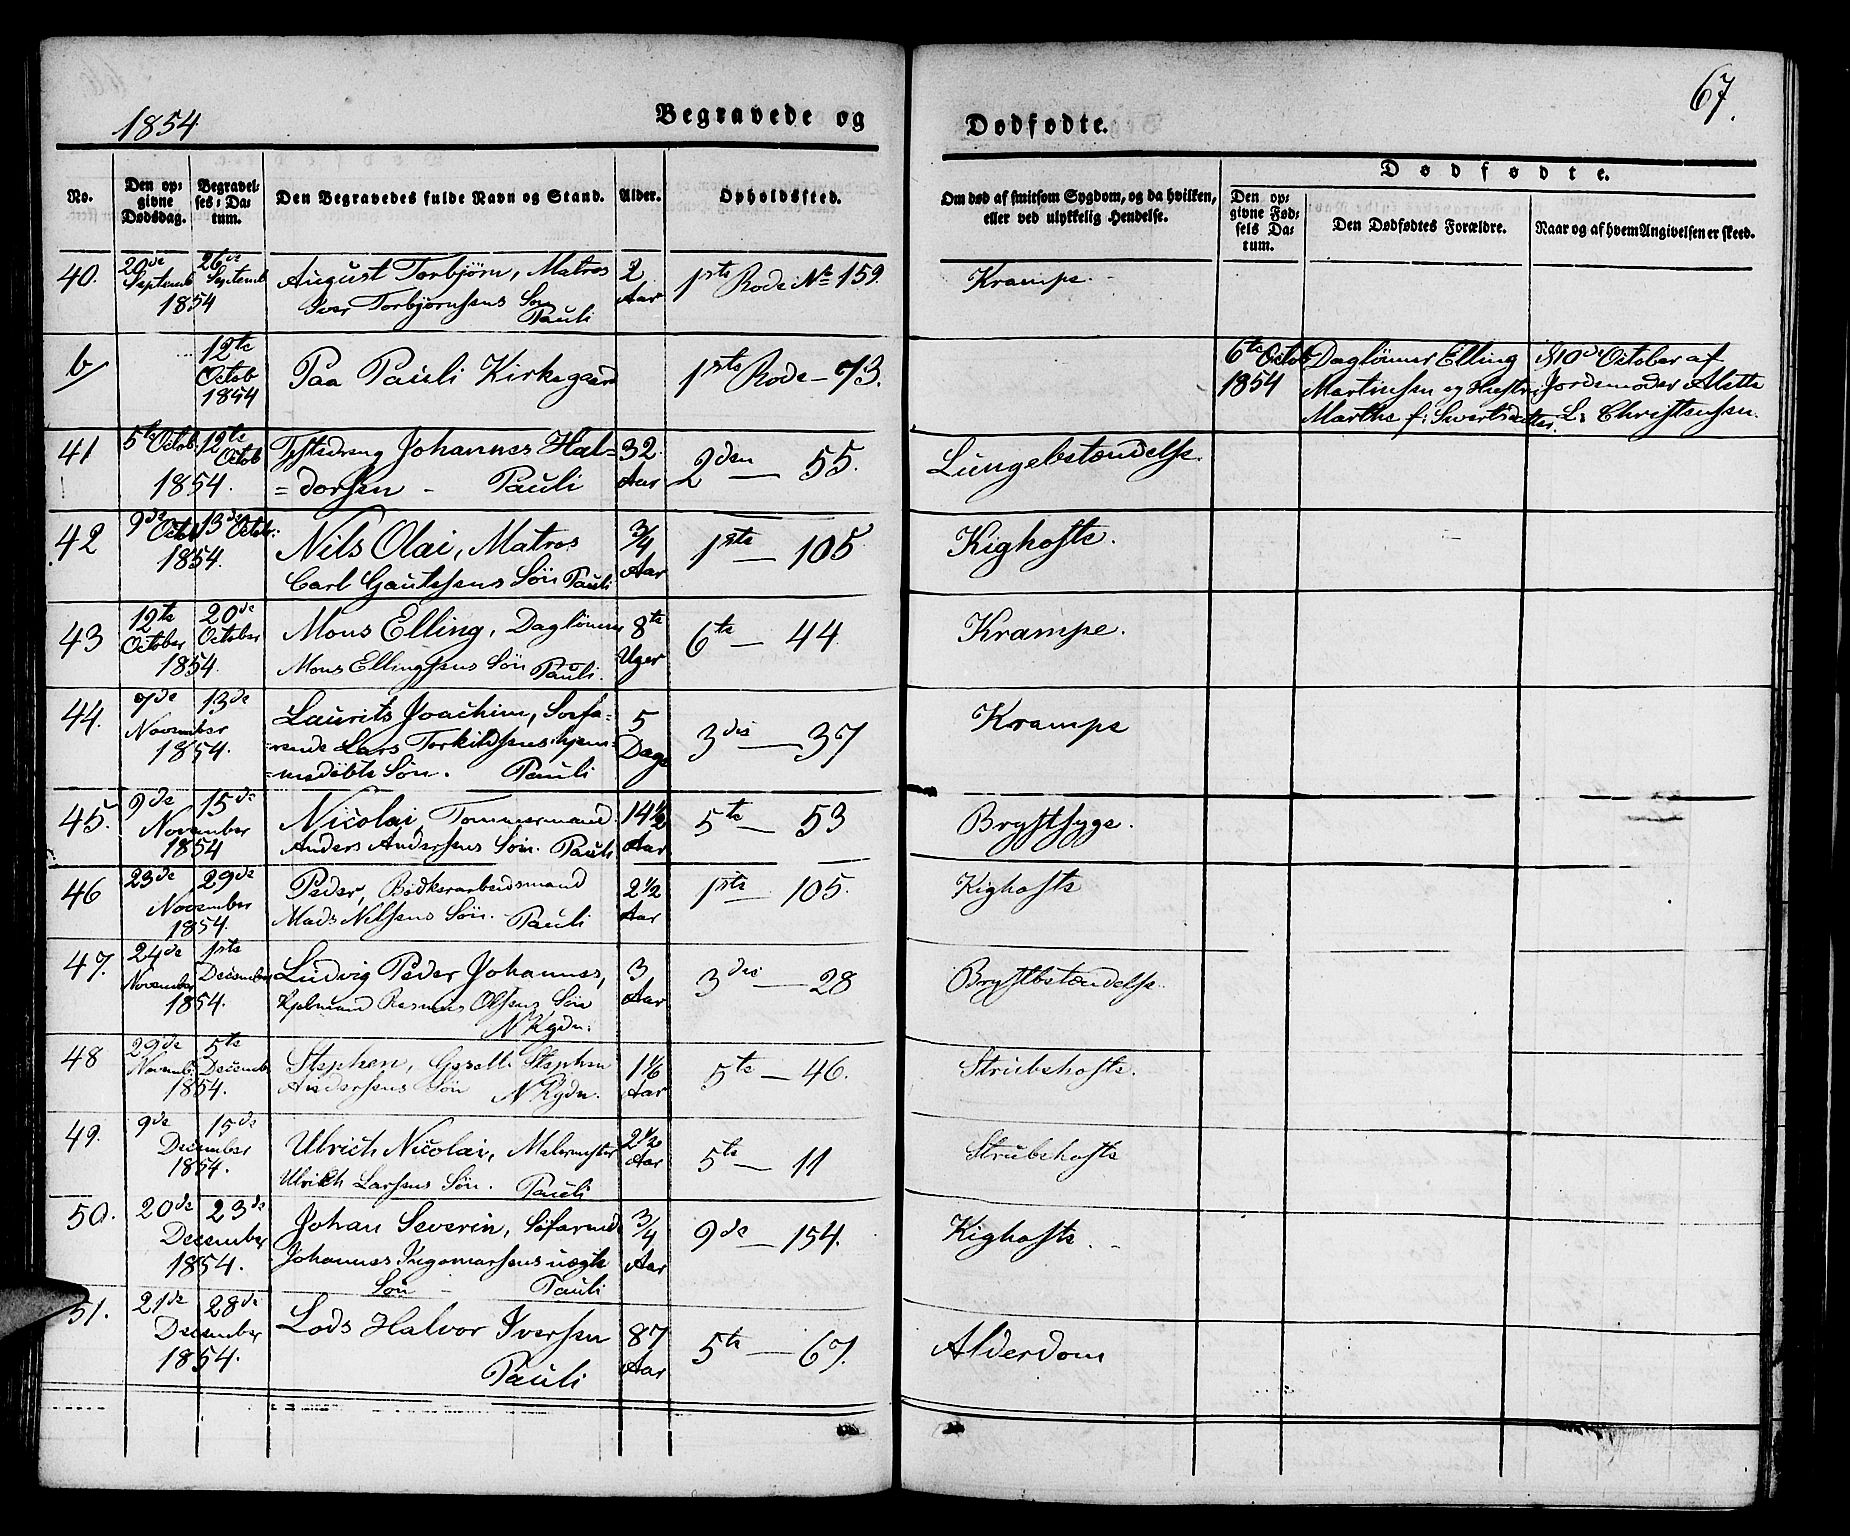 1854
Begravede og
Dødfødte.
67.
No.
Den opgivne Dødsdag.
Begravelses-Datum.
Den Begravedes fulde Navn og Stand.
Alder.
Opholdssted.
Om død af smitsom Sygdom, og da hvilken, eller ved ulykkelig Hendelse.
Dødfødte.
Den opgivne Fødsels Datum.
Den Dødfødtes Forældre.
Naar og af hvem Angivelsen er skeed.
40. 20de Septemb 26de Septemb August Torbjørn, Matros 2 1ste Rode No 159. Krampe
1854 Iver Torbjørnsens Søn Aar
Pauli
b/ 12te Paa Pauli Kirkegaard 1ste Rode – 73. 6te Octob Daglönner Elling 10de October af
Octob 1854 Martinsen og Hustru Jordemoder Alette
1854 Marthe f: Sivertsdatter. L. Christensen.
41 5te Octob 12te Octob Johannes Hal= 32. 2den — 55. Lungebetændelse.
1854. =dorsen – Pauli Aar
42 9de Octb 13de Octbr: Nils Olai, Matros 3/4 1ste — 105 Kighoste.
1854. Carl Gautesens Søn Pauli Aar
43 12te October 20de October Mons Elling, Daglönner 8te 6te — 44. Krampe.
1854. Mons Ellingsens Søn Pauli. Uger
44. 7de 13de Laurits Joachim, Søfa= 5 3die — 37 Krampe
November =rende Lars Torkildsens hjem= Dage
1854. =medöbte Søn. Pauli
45. 9de 15de Nicolai Tømmermand 14 1/2 5te — 53 Brystsyge.
November Anders Andersens Søn. Pauli Aar
1854
46 23de 29de Peder, Bødkerarbeidsmand 2 1/2 1ste — 105. Kighoste
November Mads Nilsens Søn. – Pauli Aar
1854.
47. 24de November 1ste December Ludvig Peder Johannes, 3 3die — 28 Brystbetændelse.
1854. Rasmus Olsens Søn Aar
N Kgdn.
48 29de Novemb. 5te Decemb Stephen, Gesell Stephen 1 1/6 5te — 46. Strubehoste.
1854. Andersens Søn N Kgdn. Aar
49. 9de 15de Ulrich Nicolai, Malermester 2 1/2 5te — 11 Strubehoste
December Ulrich Larsens Søn. Pauli Aar
1854.
50. 20de 23de Johan Severin, Söfarende 3/4 9de — 154. Kighoste.
December Johannes Ingemarsens uægte Aar
1854. Søn – Pauli
51. 21de 28de Lods Halvor Iversen 87 5te — 67. Alderdom
December Pauli Aar
1854.